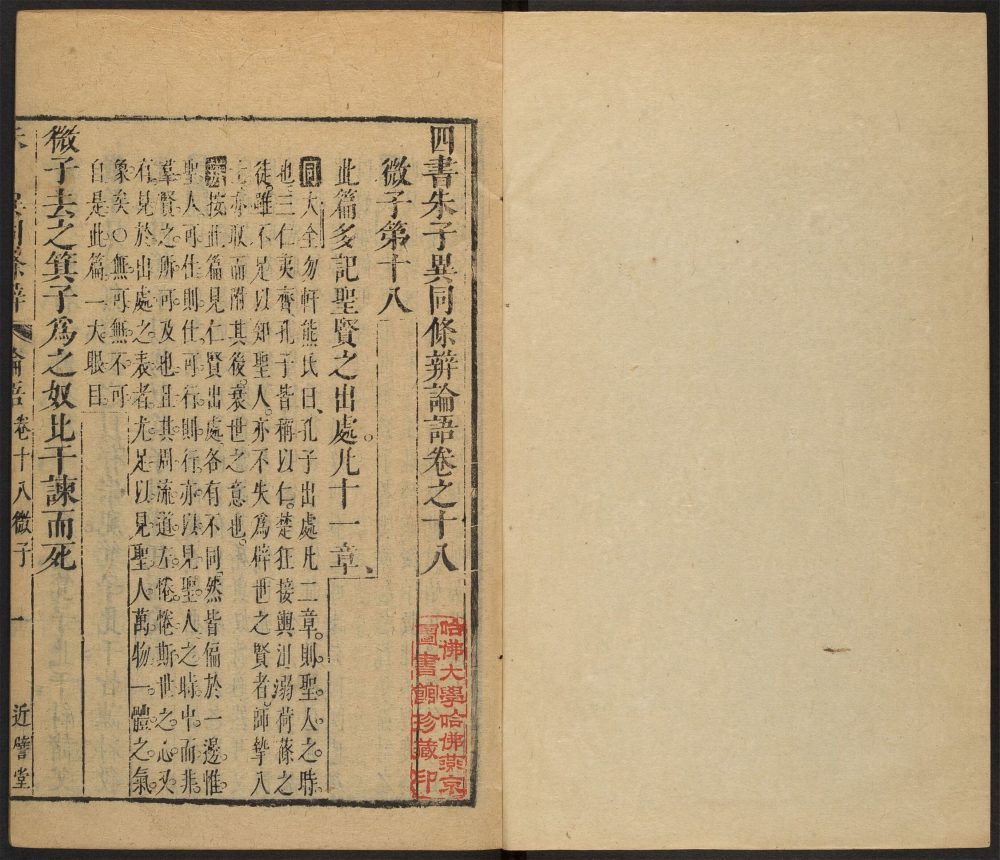 四書朱子異同條辨論語卷之十八
微子第十八
此篇多記聖賢之出處凡十一章
同大全勿軒熊氏曰孔子出處凡二章則聖人之時
也三仁夷齊孔子皆稱以仁楚狂接輿沮溺荷蓧之
徒雖不足以知聖人亦不失為辟世之賢者師摯八
士亦取而附其後衰世之意也
按此篇見仁賢出處各有不同然皆偏於一邊惟
聖人可仕則仕可行則行亦以見聖人之時中而非
羣賢之所可及也且其周流道左惓惓斯世之心又
有見於出處之表者尤足以見聖人萬物一體之氣
象矣○無可無不可
自是此篇一大眼目
微子去之箕子為之奴比干諫而死
論語 卷十八微子 一 近譬堂
哈佛大學哈佛燕京
圖書館珍藏印